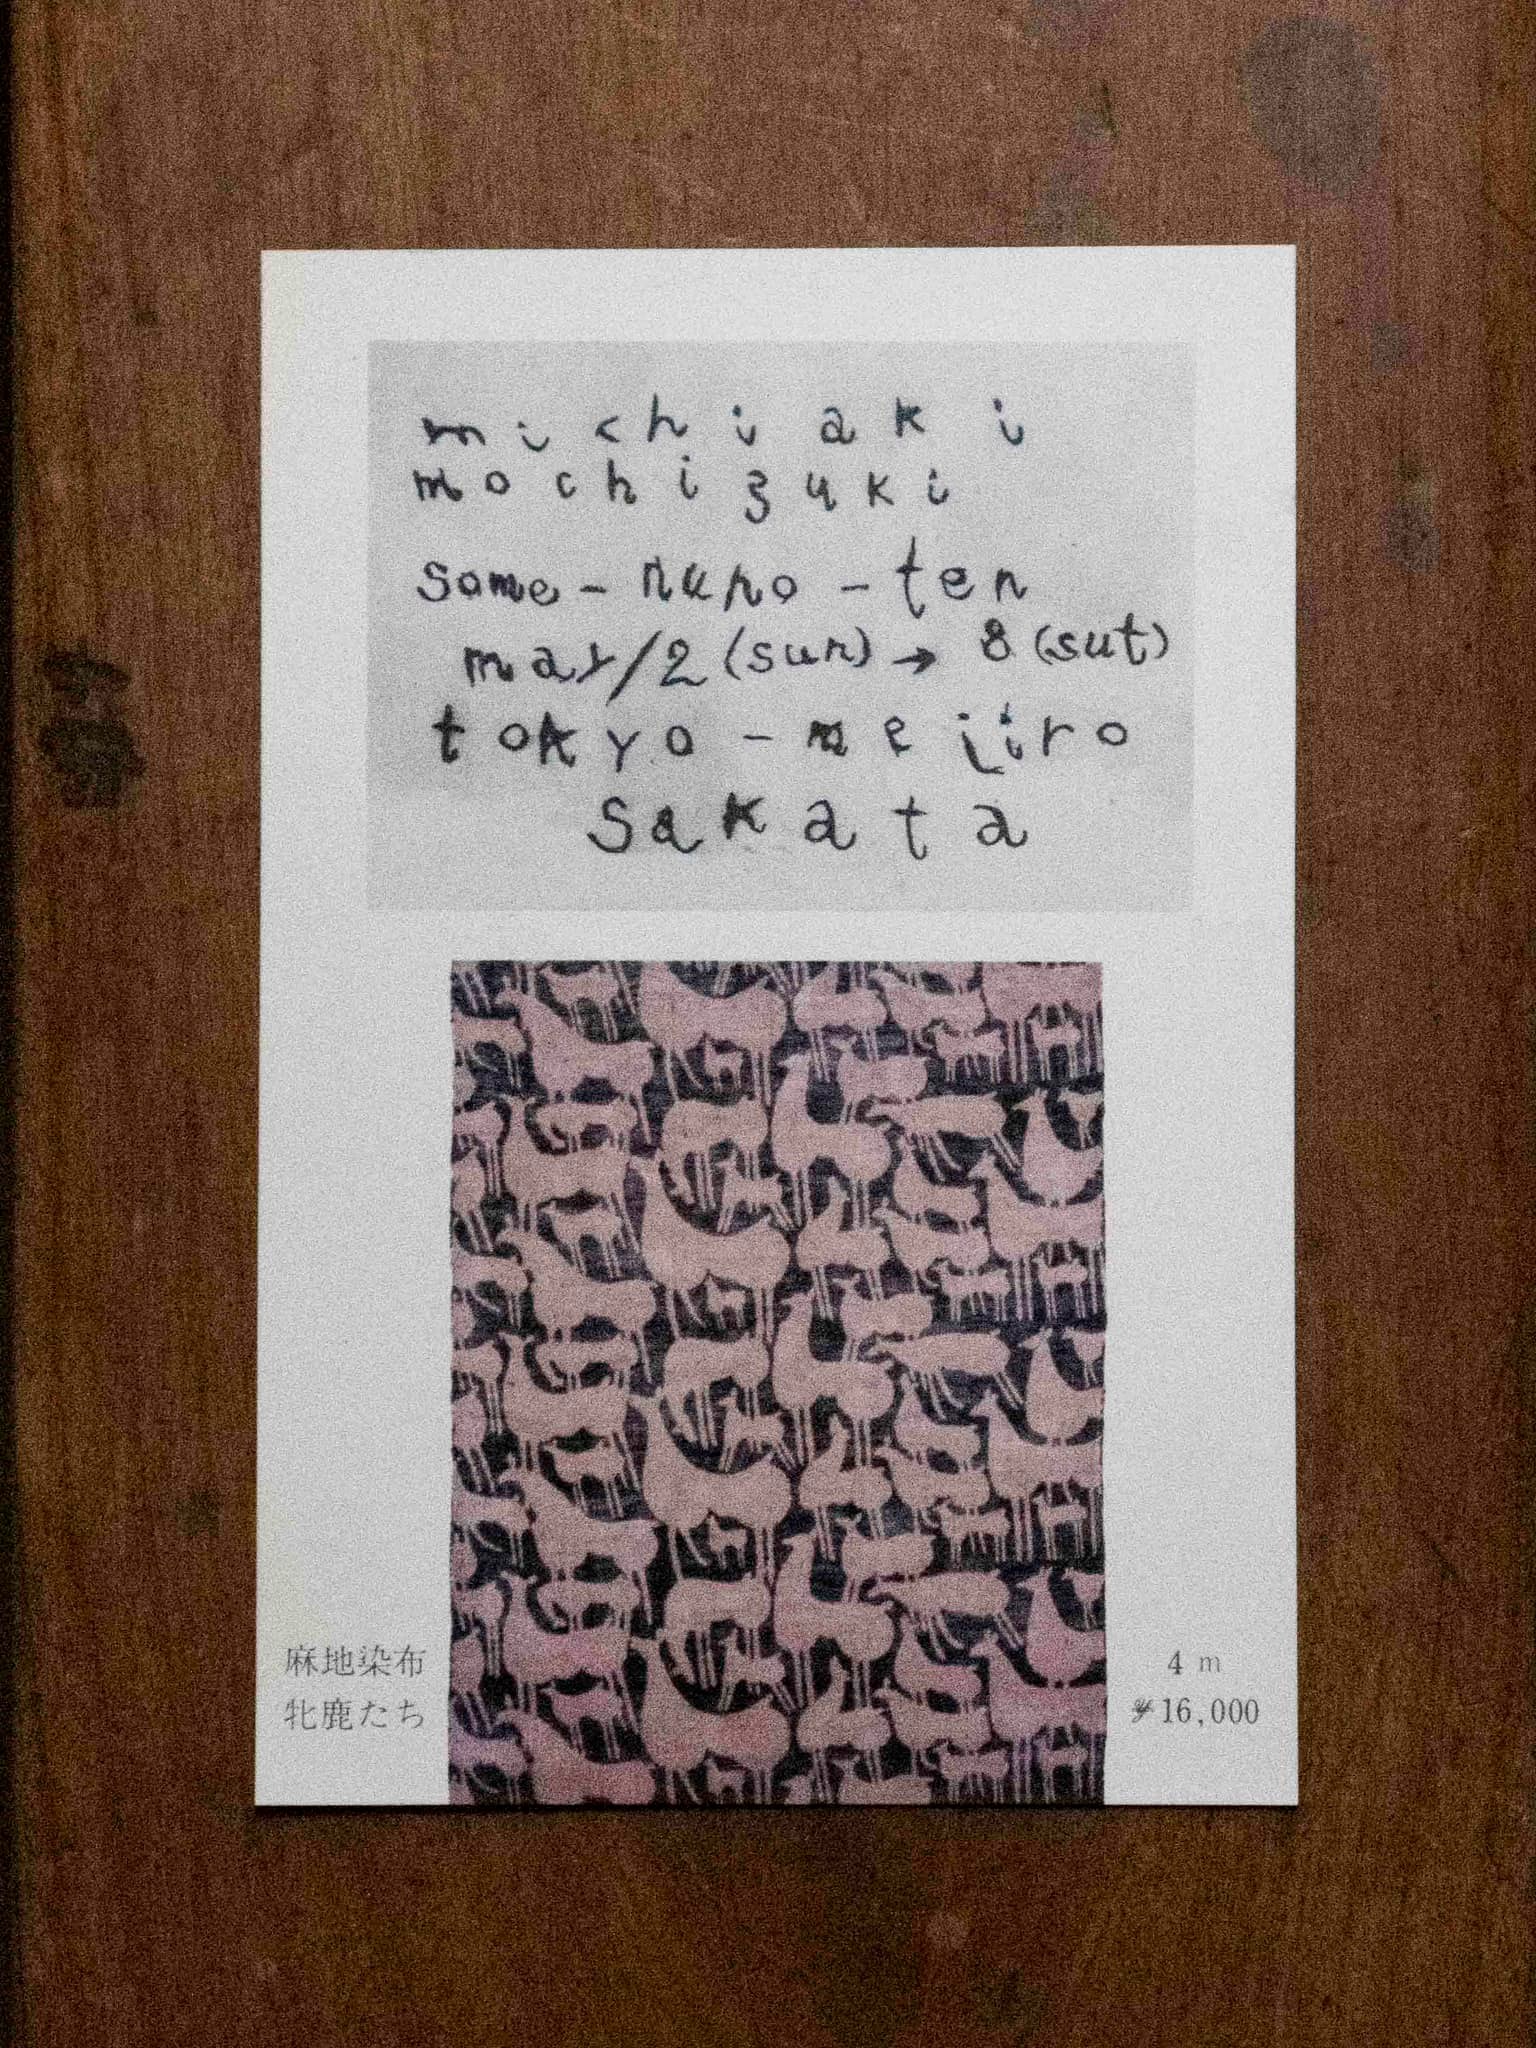 michiaki
mochizuki
some-nuno-ten
may/2(sun)→8(sut)
tokyo-mejiro
sakata
麻地染布
牝鹿たち
4 m
¥16,000